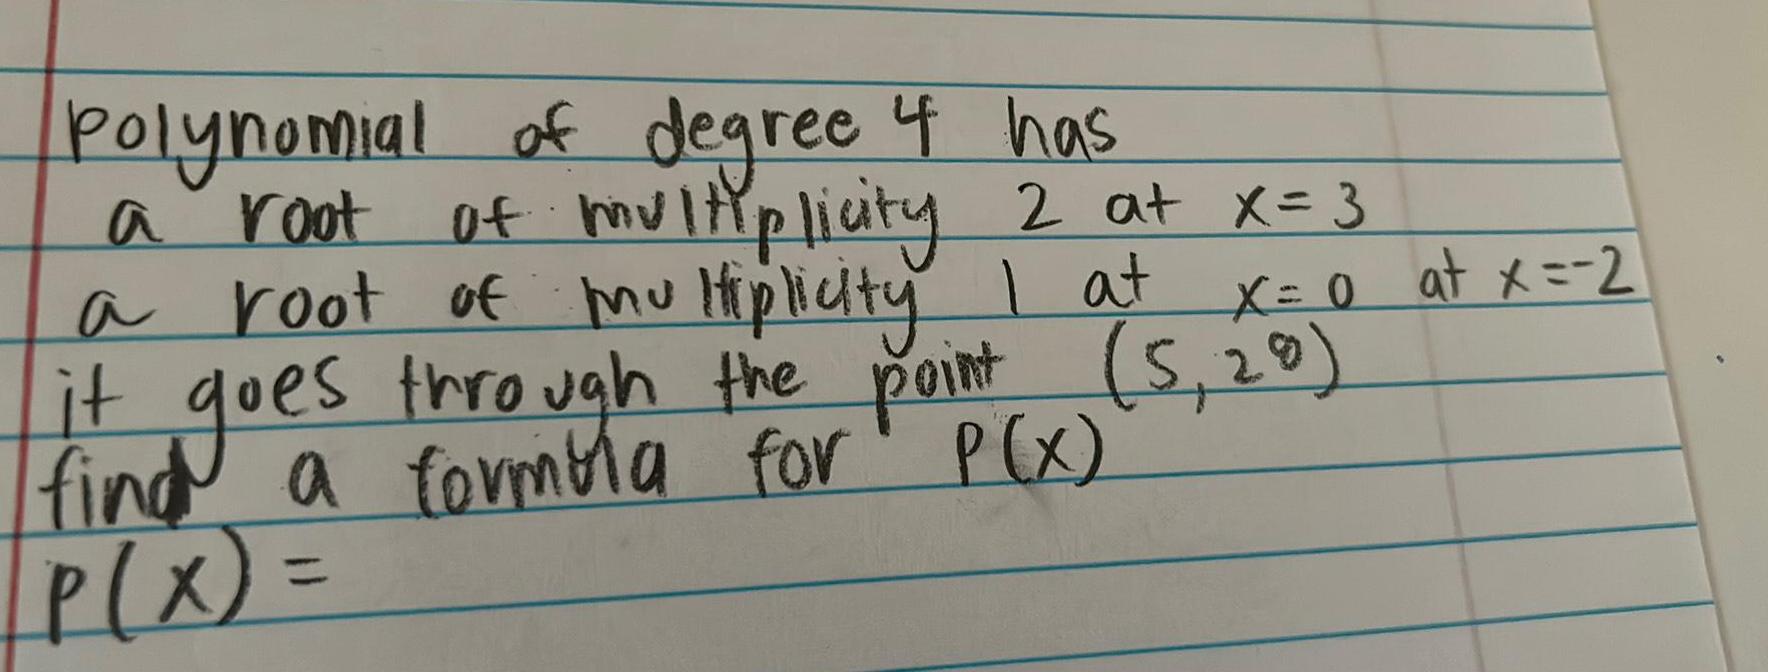 polynomial of degree 4 has
a root of multiplicity 2 at x = 3
a root of multiplicity 1 at x = 0 at x = -2
it goes through the point (5, 28)
find a formula for p(x)
p(x) =